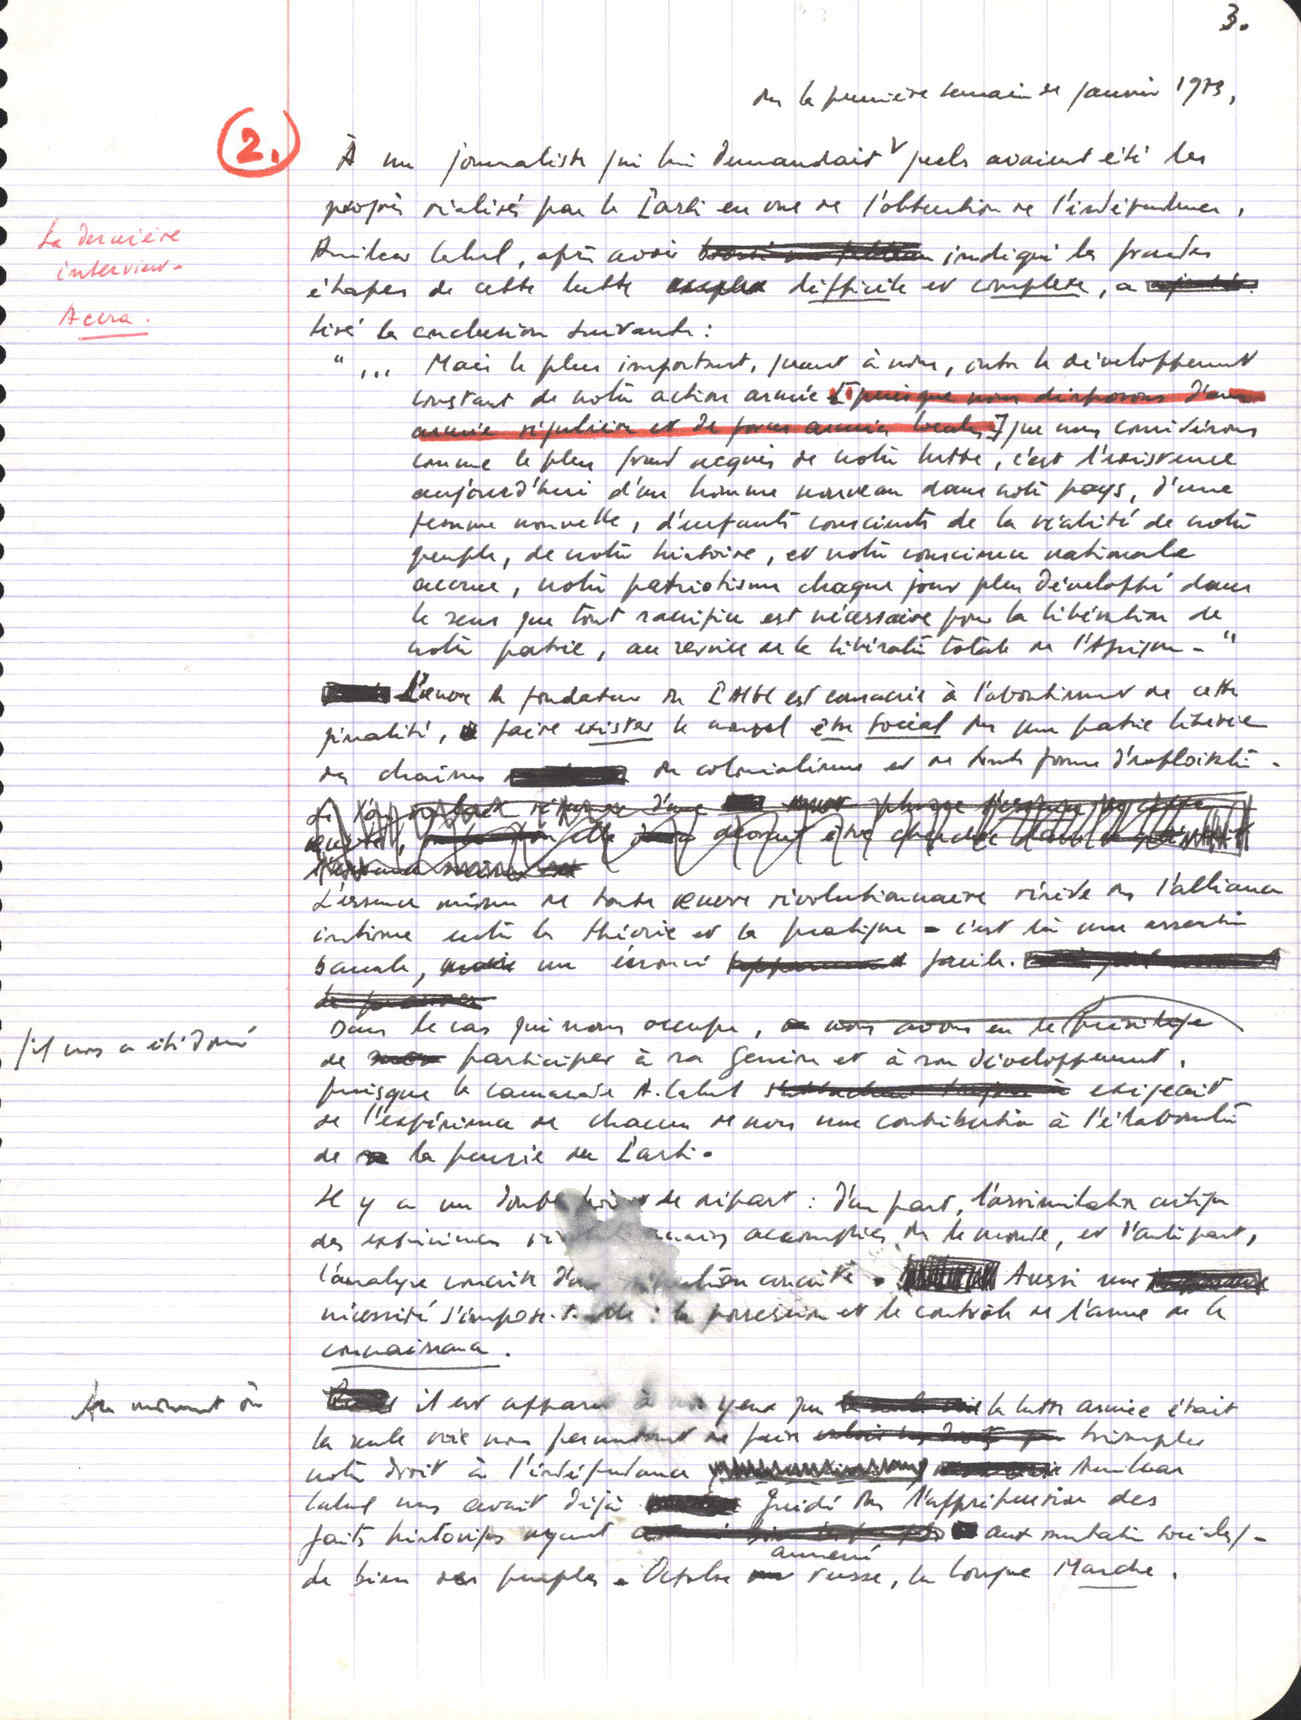 3.
ds la première semaine de janvier 1973,
2.
À un journaliste qui lui demandait quels avaient été les
progrès réalisés par le Parti en vue de l'obtention de l'indépendance,
La dernière
interview -
Accra.
Amilcar Cabral, après avoir indiqué les grandes
étapes de cette lutte difficile et complexe, a
tiré la conclusion suivante :
" ... Mais le plus important, quant à nous, outre le développement
constant de notre action armée [puisque nous disposons d'une
armée régulière et de forces armées locales] que nous considérons
comme le plus grand acquis de notre lutte, c'est l'existence
aujourd'hui d'un homme nouveau dans notre pays, d'une
femme nouvelle, d'enfants conscients de la réalité de notre
peuple, de notre histoire, et notre conscience nationale
accrue, notre patriotisme chaque jour plus développé dans
le sens que tout sacrifice est nécessaire pour la libération de
notre patrie, au service de la libération totale de l'Afrique - "
L'œuvre du fondateur du PAIGC est consacrée à l'aboutissement de cette
finalité, faire exister le nouvel être social ds une patrie libérée
des chaînes du colonialisme et de toute forme d'exploitation -
L'essence même de toute œuvre révolutionnaire réside ds l'alliance
intime entre la théorie et la pratique - c'est là une assertion
banale, un énoncé facile.
Dans le cas qui nous occupe, nous avons eu le privilège
s'il nous a été donné
de participer à sa genèse et à son développement,
puisque le camarade A. Cabral exigeait
de l'expérience de chacun de nous une contribution à l'élaboration
de la pensée du Parti.
Il y a un double de départ : d'une part, l'assimilation critique
des expériences accomplies ds le monde, et d'autre part,
l'analyse concrète d'une situation concrète. Aussi une
nécessité s'impose-t-elle : la possession et le contrôle de l'arme de la
connaissance.
Au moment où
il est apparu à nos yeux que la lutte armée était
la seule voie nous permettant de faire triompher
notre droit à l'indépendance Amilcar
Cabral nous avait déjà guidé ds l'appréhension des
faits historiques ayant aux mutations sociales -
amené
de bien des peuples - Octobre russe, la Longue Marche.